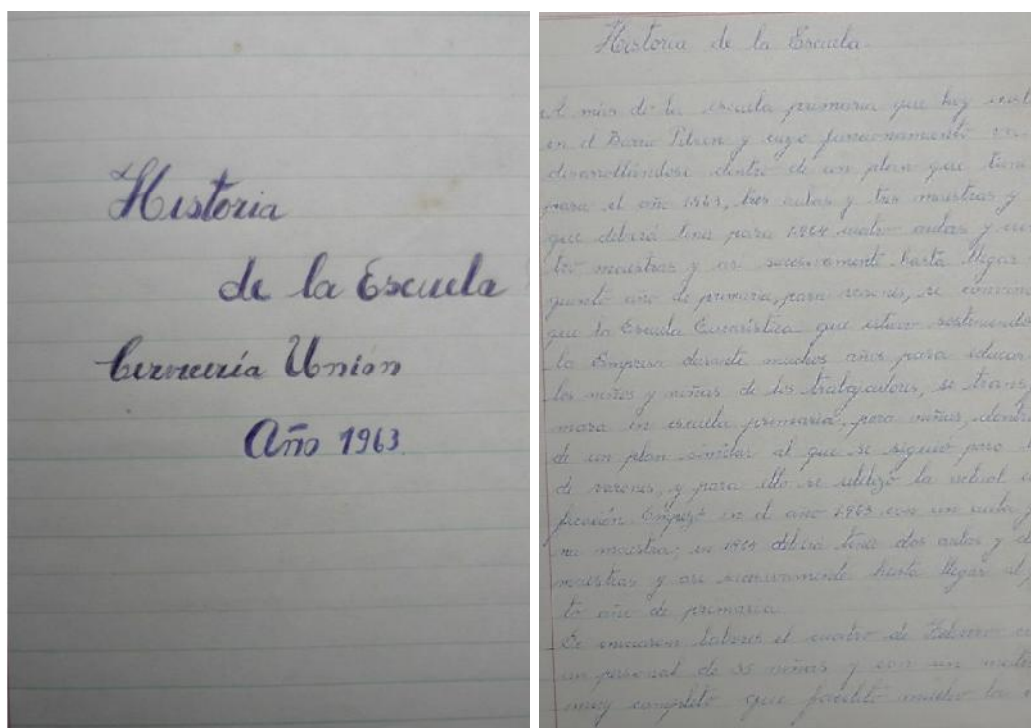 Historia
de la Escuela
Cervecería Unión
Año 1963.
Historia de la Escuela.
A más de la escuela primaria que hoy
en el Barrio y cuyo funcionamiento
desarrollándose dentro de un plan que tiene
para el año 1963, tres aulas y tres maestras y
que deberá tener para 1964 cuatro aulas y
tro maestras y así sucesivamente hasta llegar
quinto año de primaria, para varones, se
que la Escuela Eucarística que estuvo
la Empresa durante muchos años para educar
los niños y niñas de los trabajadores, se
mara en escuela primaria, para niñas,
de un plan similar al que se siguió para
de varones, y para ello se utilizó la actual
ficación. Empezó en el año 1963 con un aula y
na maestra; en 1964 deberá tener dos aulas y
maestras y así sucesivamente hasta llegar al
to año de primaria.
Se iniciaron labores el cuatro de Febrero
un personal de 35 niñas y con un
muy completo que facilitó mucho la